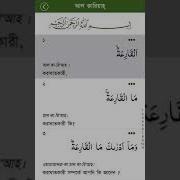 আল কারিয়াহ্
بِسْمِ اللَّهِ الرَّحْمَٰنِ الرَّحِيمِ
১
الْقَارِعَةُ
করাঘাতকারী,
২
مَا الْقَارِعَةُ
করাঘাতকারী কি?
৩
وَمَا أَدْرَاكَ مَا الْقَارِعَةُ
করাঘাতকারী সম্পর্কে আপনি কি জানেন ?